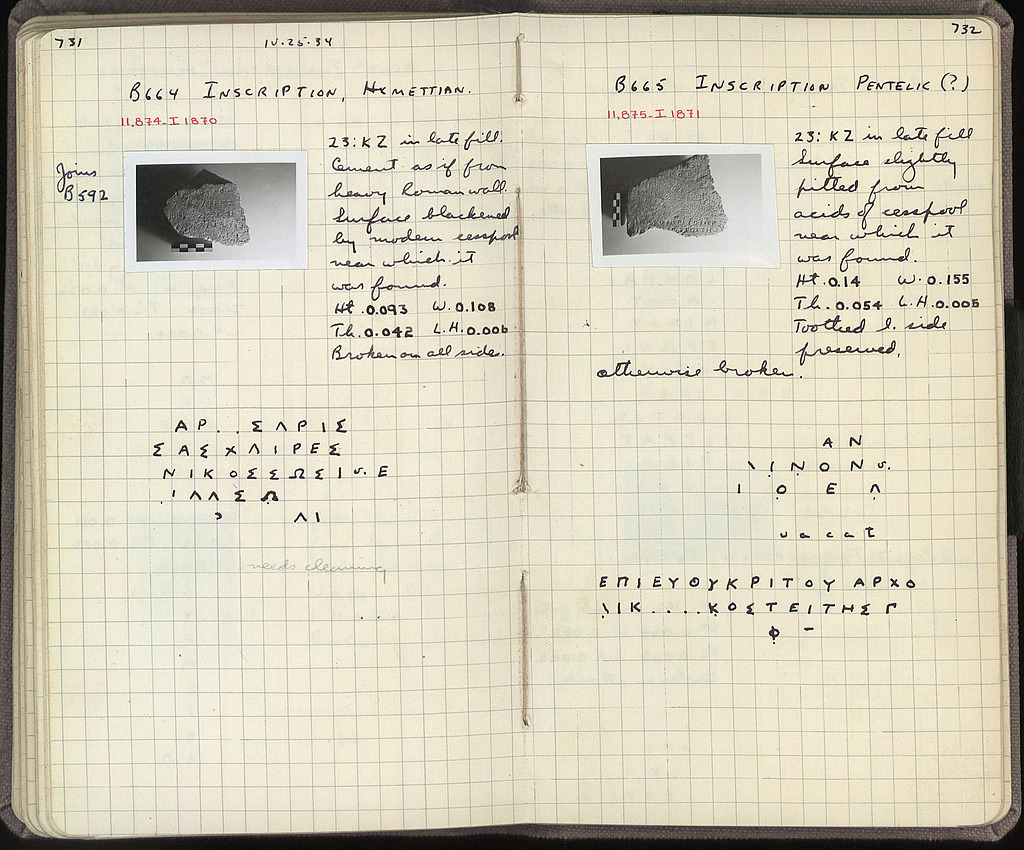 731
IV-25-34
B664 INSCRIPTION, HYMETTIAN.
11,874-I 1870
Joins
B592
23: KZ in late fill.
Cement as if from
heavy Roman wall.
Surface blackened
by modern cesspool
near which it
was found.
Ht. 0.093 W. 0.108
Th. 0.042 L.H. 0.006
Broken on all sides.
ΑΡ..ΣΛΡΙΣ
ΣΑΣΧΛΙΡΕΣ
ΝΙΚΟΣΣΩΣΙ v. Ε
ΙΛΛΣΩ
ΛΙ
needs cleaning
732
B665 INSCRIPTION PENTELIC (?)
11,875-I 1871
23: KZ in late fill
Surface slightly
pitted from
acids of cesspool
near which it
was found.
Ht. 0.14 W. 0.155
Th. 0.054 L.H. 0.005
Toothed l. side
preserved,
otherwise broken.
ΑΝ
\ΙΝΟΝ v.
Ι Ο Ε Λ
vacat
ΕΠΙΕΥΘΥΚΡΙΤΟΥΑΡΧΟ
\ΙΚ....ΚΟΣΤΕΙΤΗΣΓ
Φ –